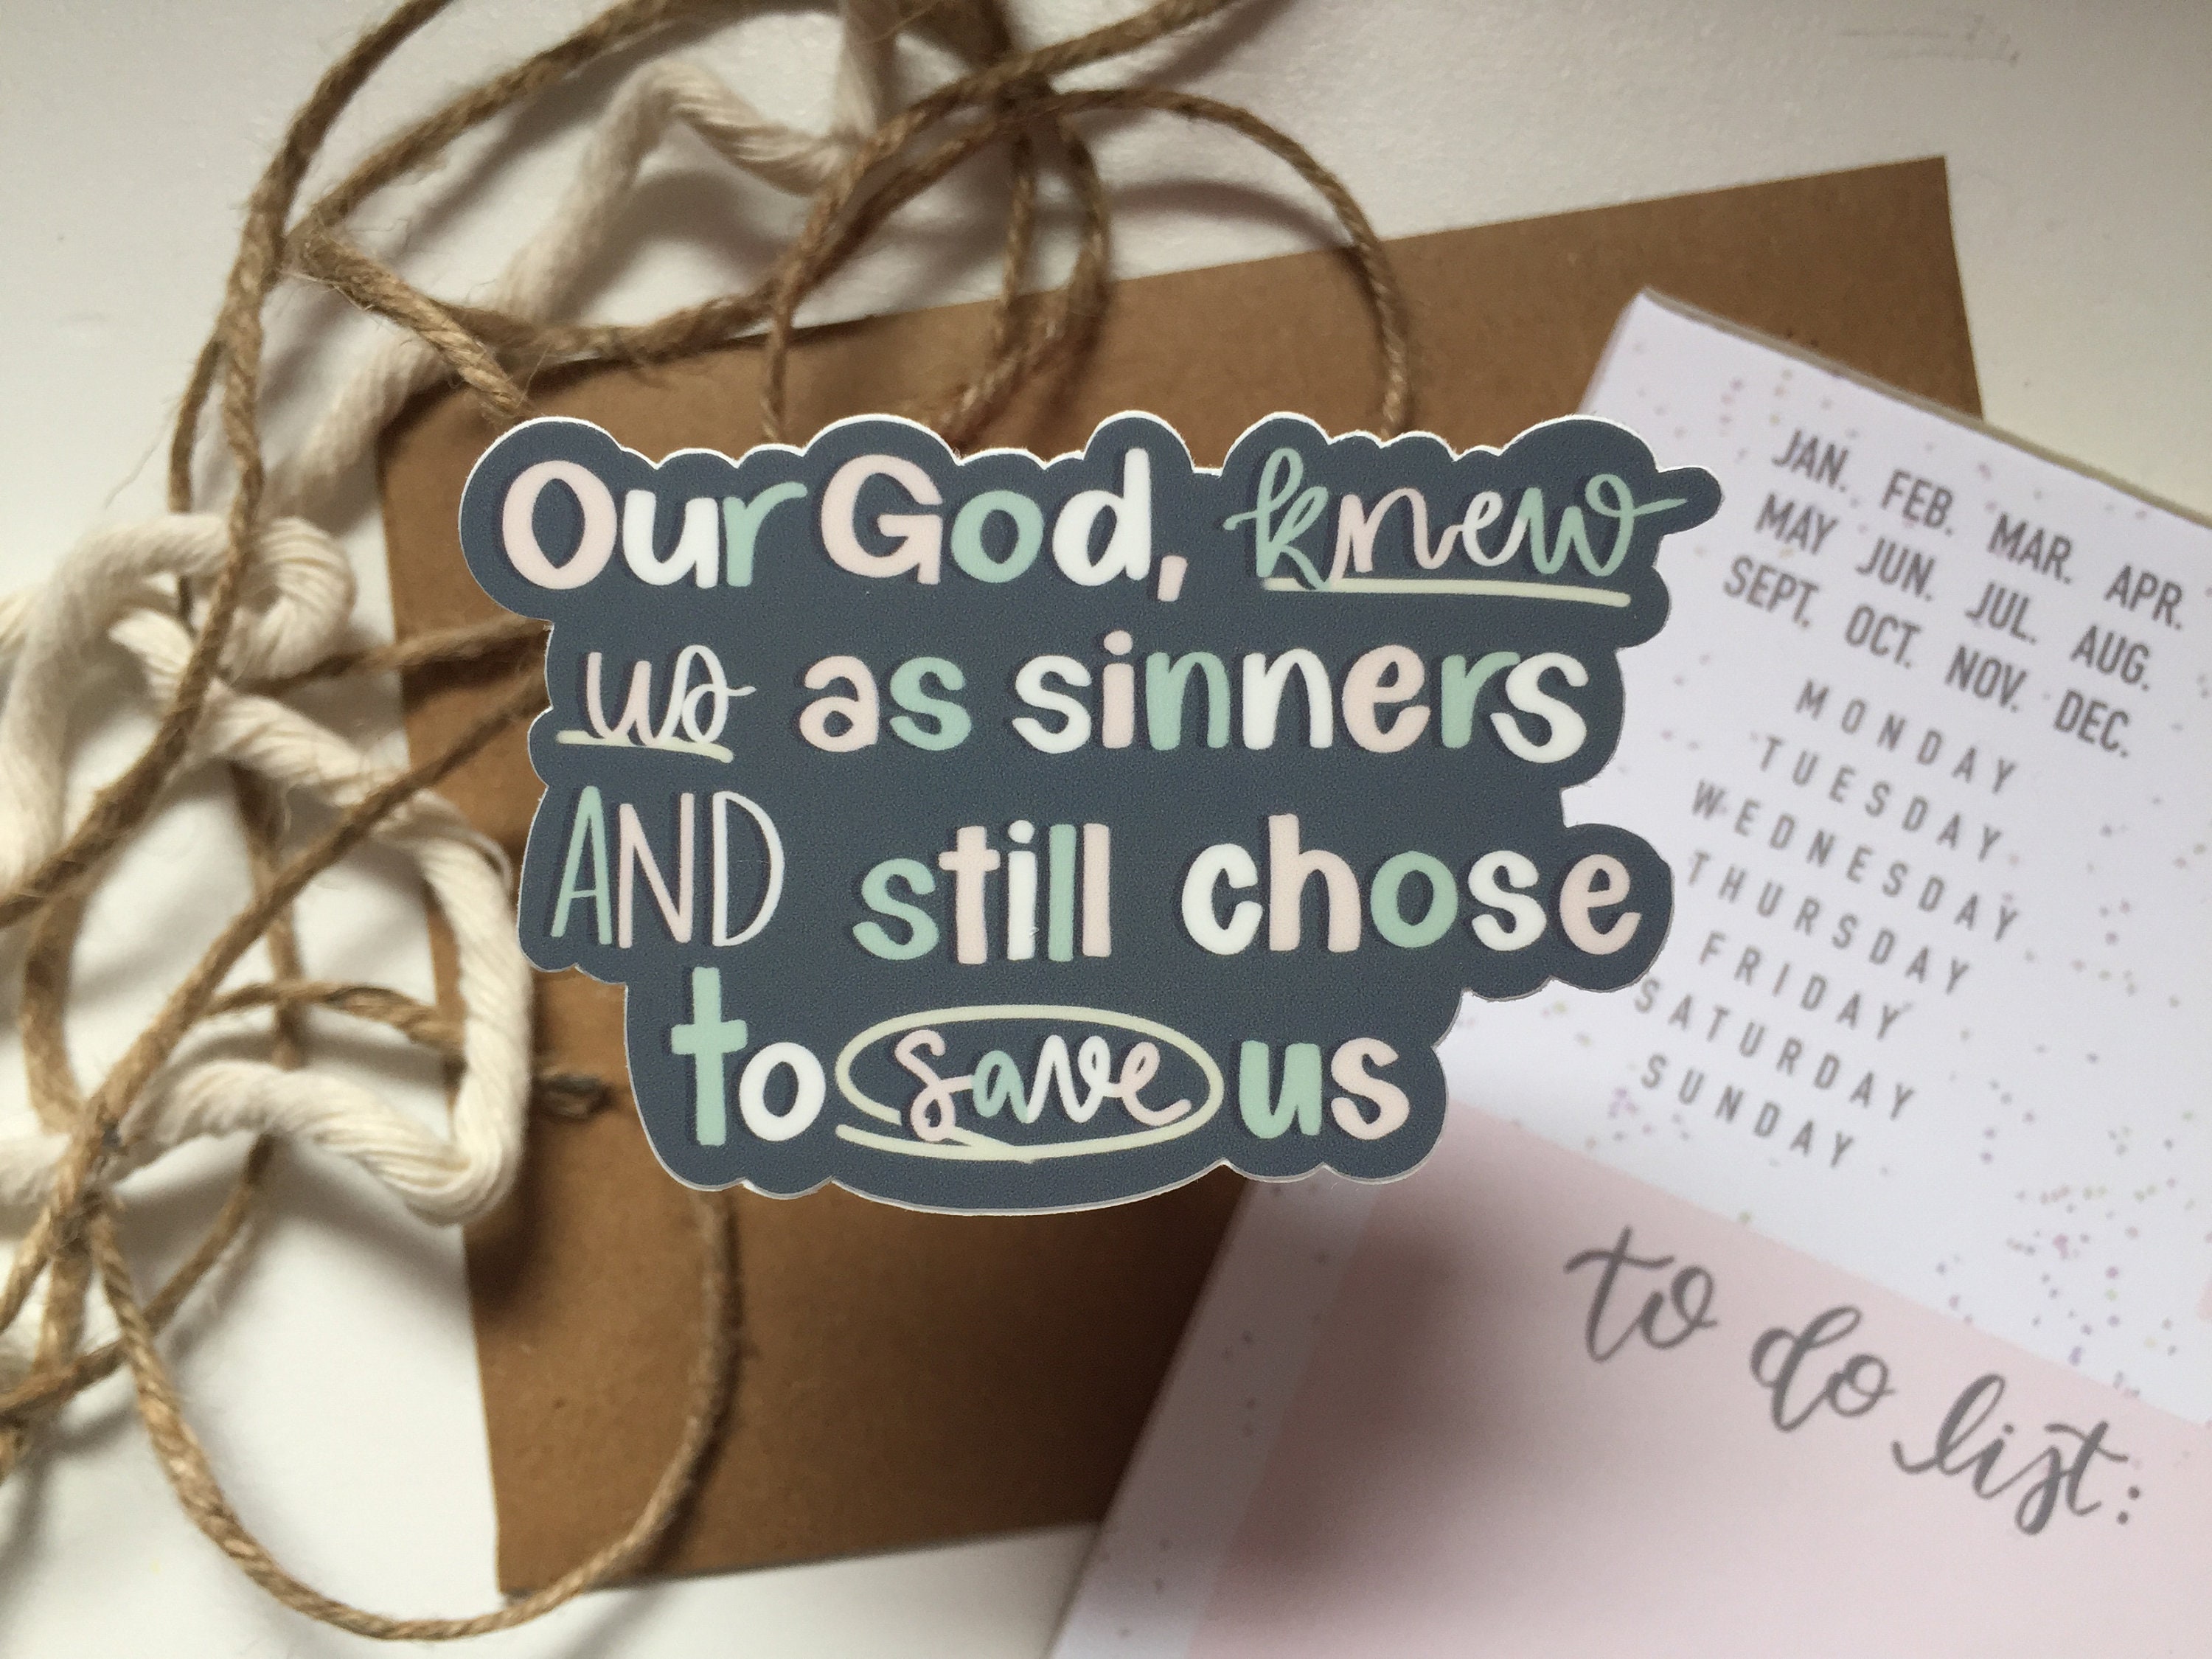 Our God, knew
us as sinners
AND still chose
to save us
JAN. FEB. MAR. APR.
MAY JUN. JUL. AUG.
SEPT. OCT. NOV. DEC.
MONDAY
TUESDAY
WEDNESDAY
THURSDAY
FRIDAY
SATURDAY
SUNDAY
to do list: